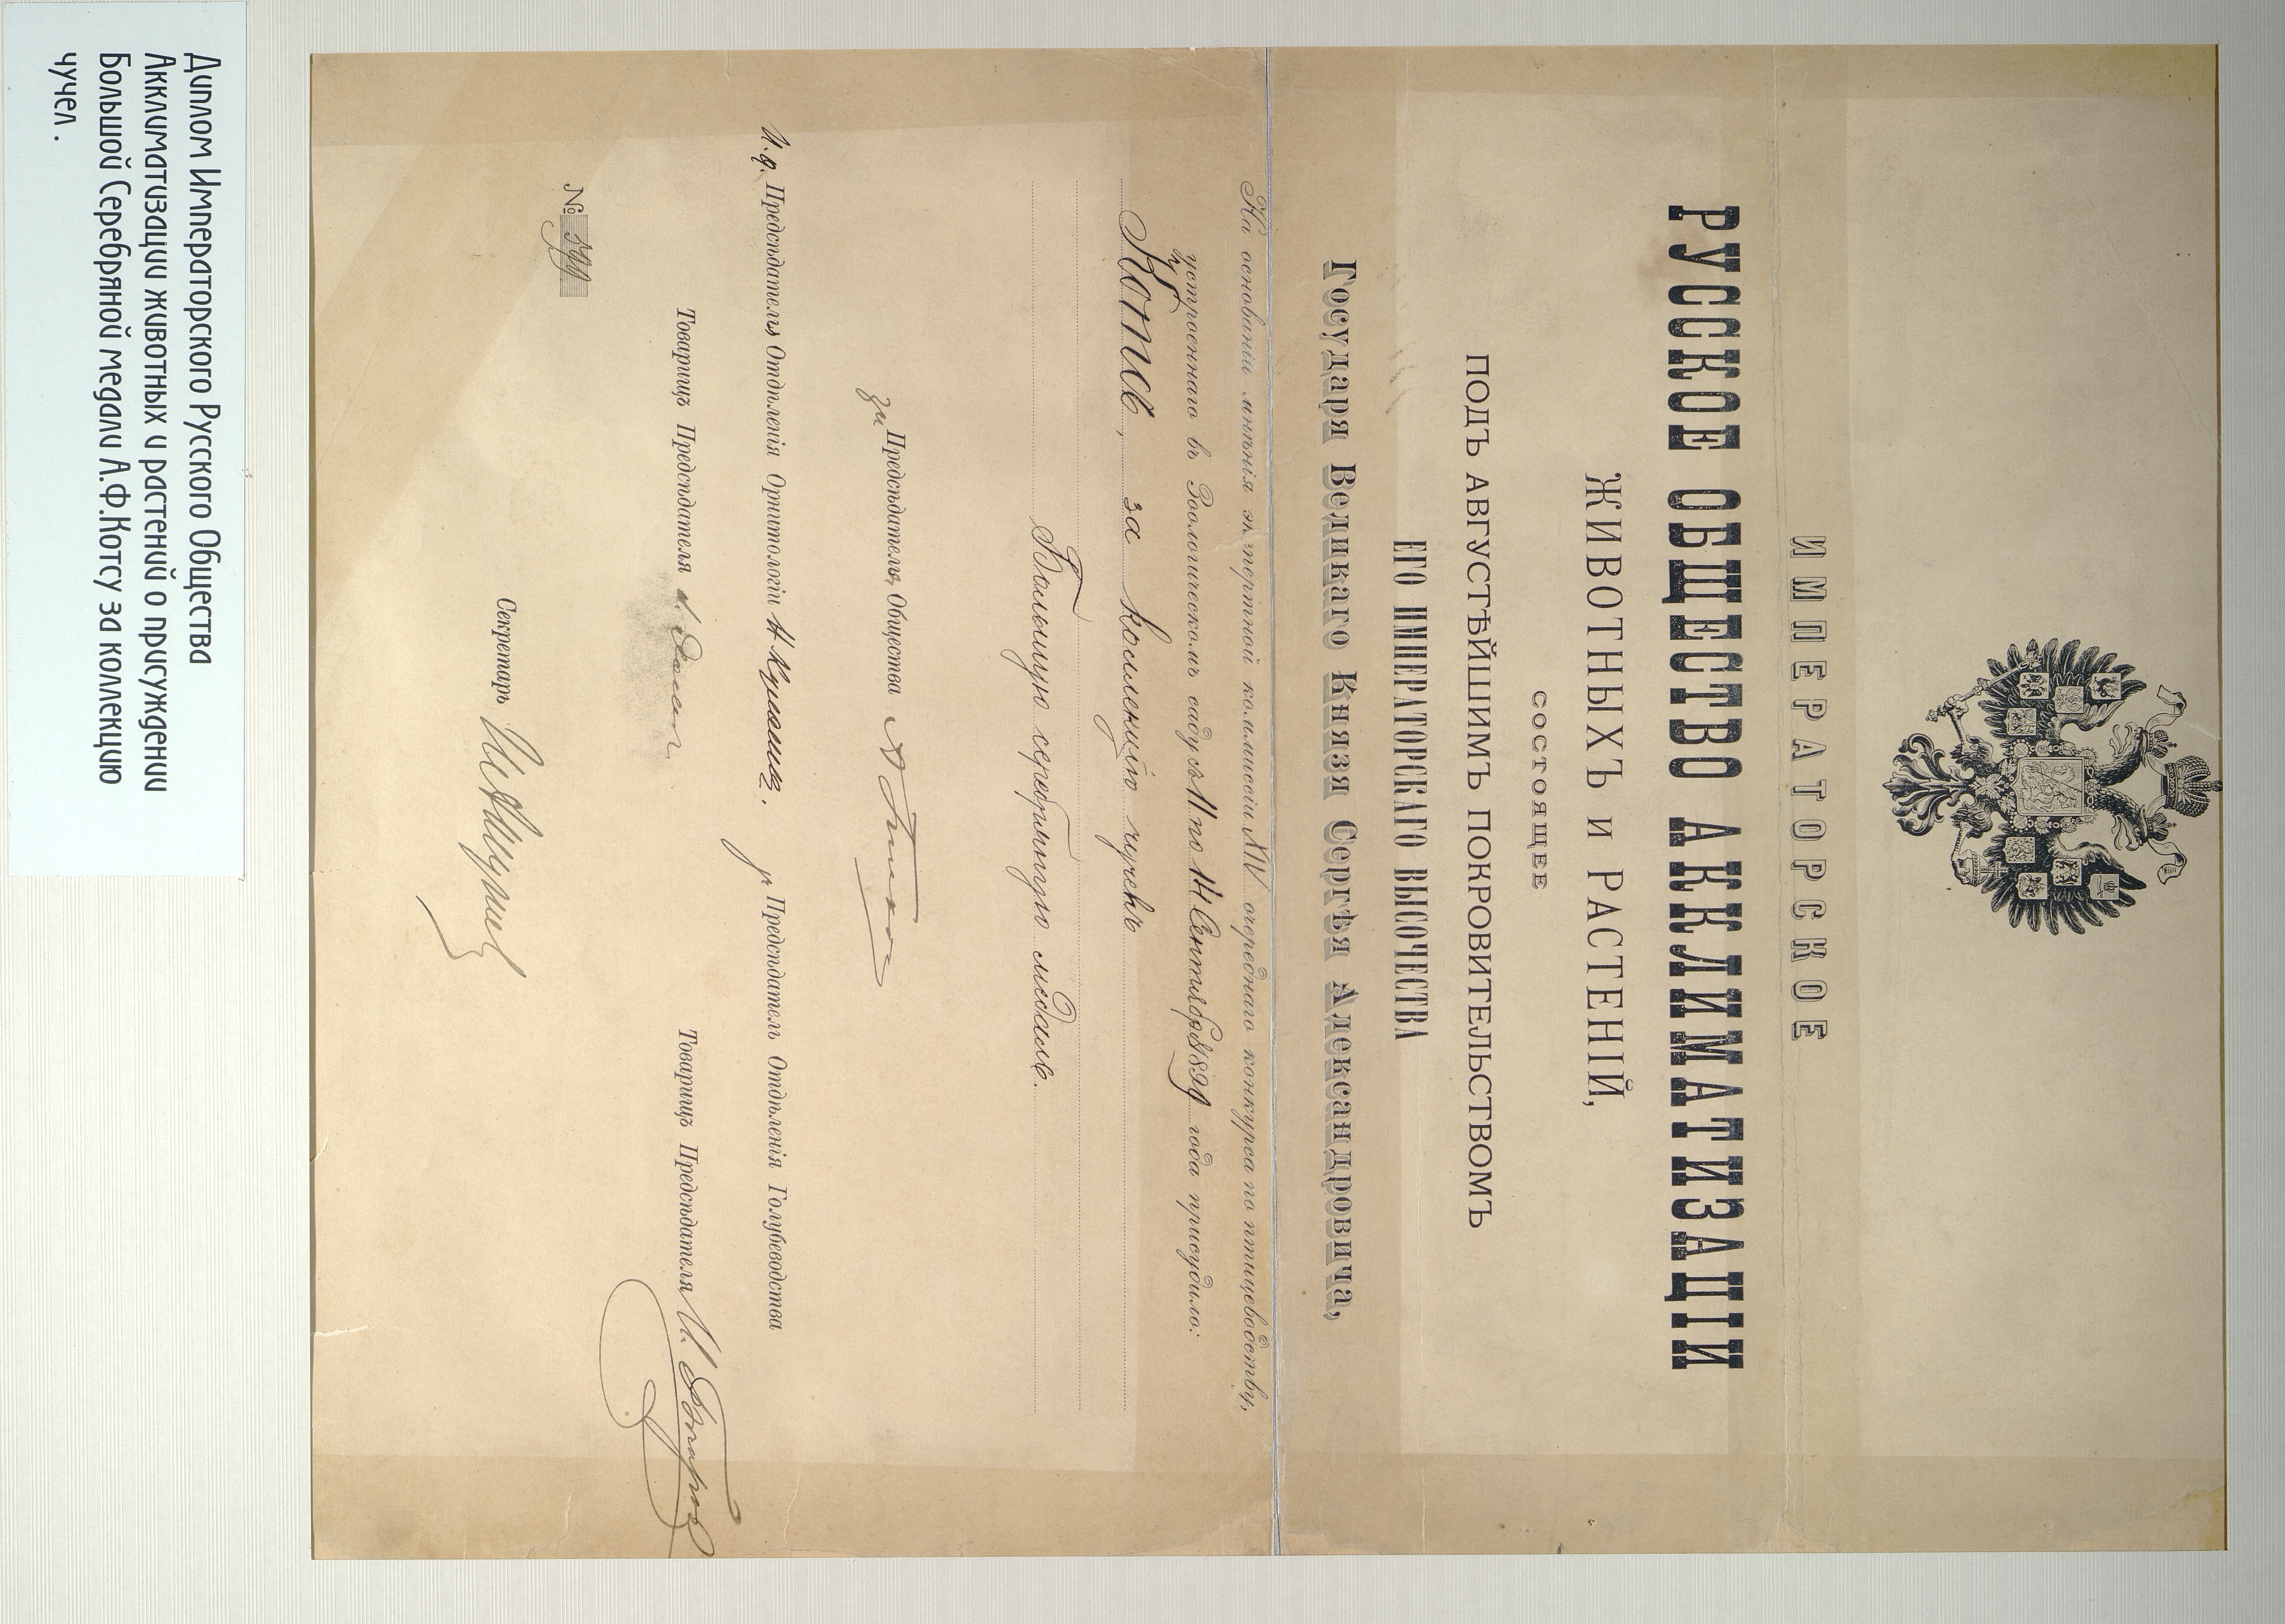 ИМПЕРАТОРСКОЕ
РУССКОЕ ОБЩЕСТВО АККЛИМАТИЗАЦІИ
ЖИВОТНЫХЪ и РАСТЕНІЙ,
СОСТОЯЩЕЕ
ПОДЪ АВГУСТѢЙШИМЪ ПОКРОВИТЕЛЬСТВОМЪ
ЕГО ИМПЕРАТОРСКАГО ВЫСОЧЕСТВА
Государя Великаго Князя Сергѣя Александровича,
На основаніи мнѣнія экспертной коммиссіи XIV очереднаго конкурса по птицеводству,
устроеннаго въ Зоологическомъ саду съ 11 по 14 Сентября 1899 года присудило:
Котсъ, за коллекцію чучелъ
Большую серебряную медаль.
за Предсѣдателя Общества
И.д. Предсѣдателя Отдѣленія Орнитологіи Н Кулагинъ.
Предсѣдатель Отдѣленія Голубеводства
Товарищъ Предсѣдателя
Товарищъ Предсѣдателя И.
Секретарь
№ 599
Диплом Императорского Русского Общества
Акклиматизации животных и растений о присуждении
Большой Серебряной медали А.Ф.Котсу за коллекцию
чучел .